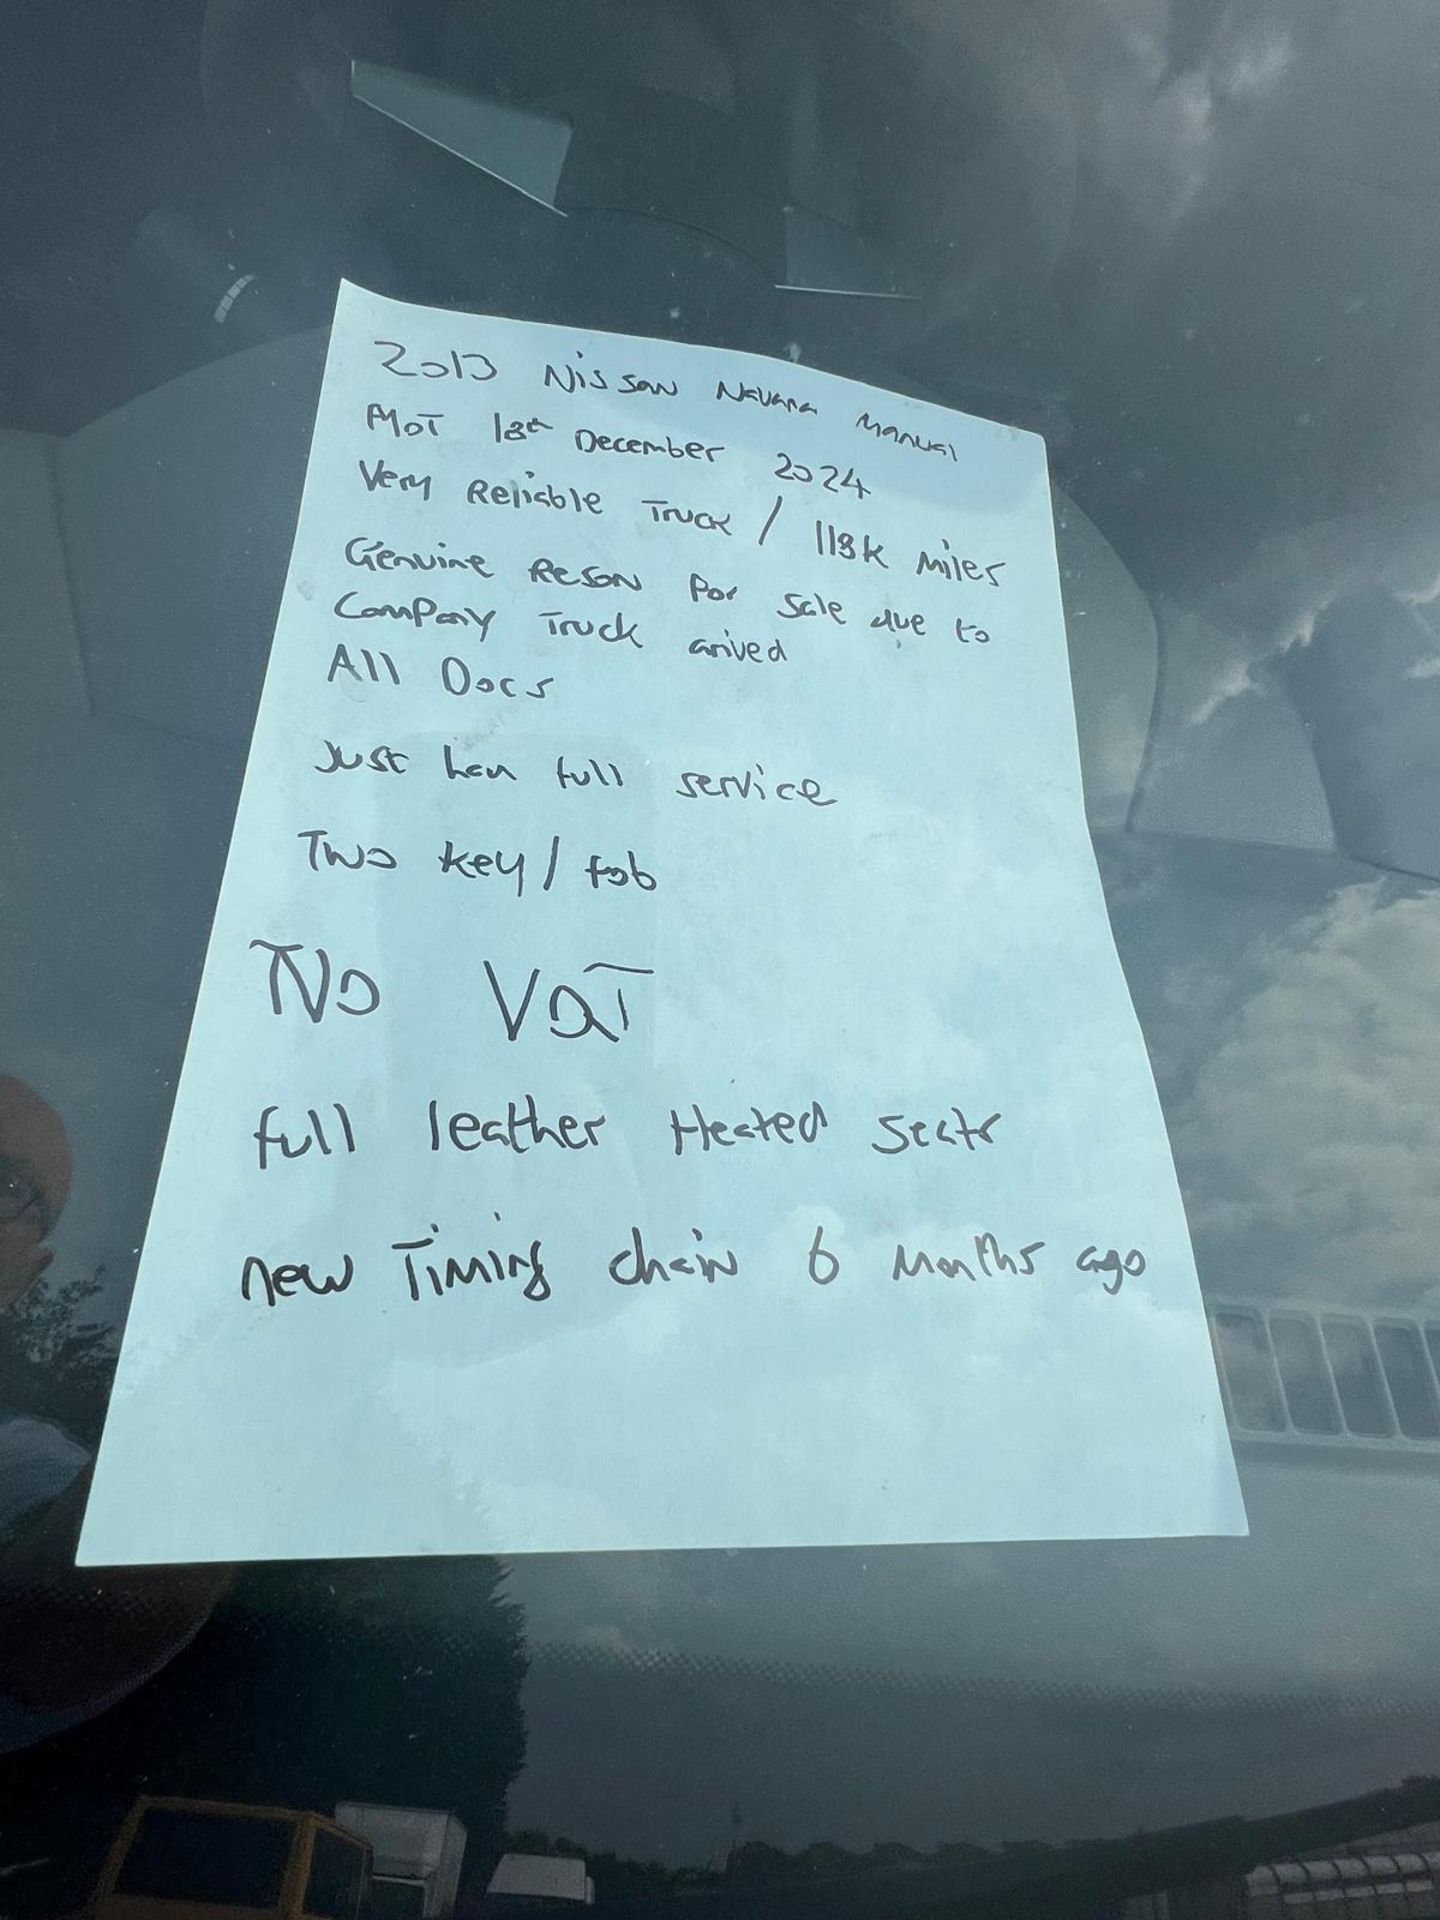 2013 Nissan Navara Manual
MOT 18th December 2024
Very Reliable Truck / 118K Miles
Genuine Reson for Sale due to
Company Truck arived
All Docs
Just han full service
Two key / fob
No VaT
full leather Heated Seats
new Timing chain 6 Months ago